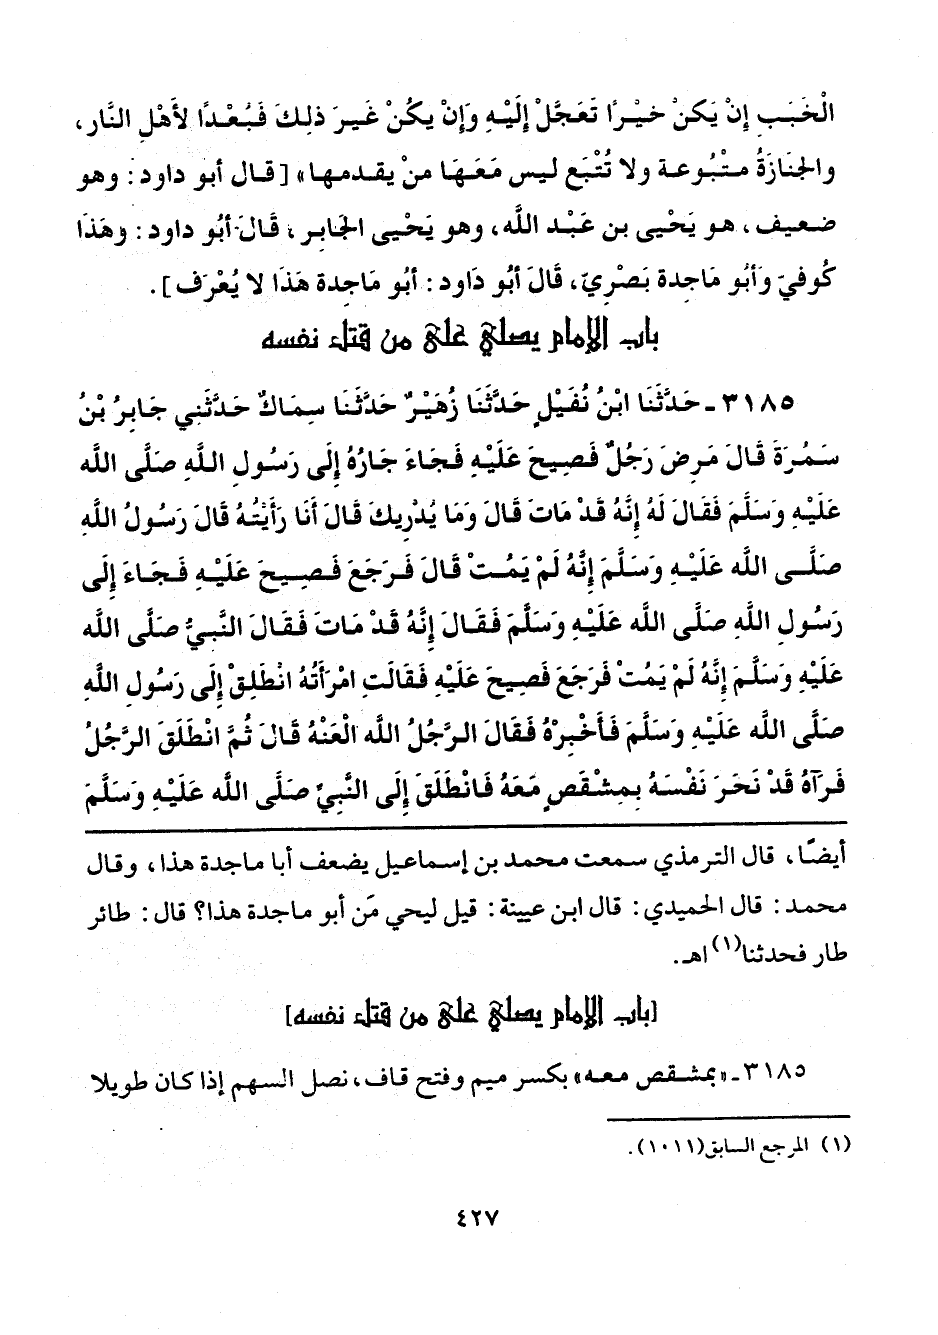 الْخَبَبِ إِنْ يَكنْ خَيْرًا تَعَجَّلْ إِلَيْهِ وَإِنْ يكُنْ غَيرَ ذلِكَ فَبُعْدًا لأَهْلِ النَّارِ،
والجَنَازَةُ متْبُوعَة ولا تُتْبَع ليس مَعَهَا منْ يقدمها» [قال أبو داود: وهو
ضعيف، هو يَحْيى بن عَبْد اللَّه، وهو يَحْيى الجَابر، قَالَ أبُو داود: وهَذَا
كُوفيّ وَأبُو مَاجدة بَصْريّ، قَالَ أبُو دَاود: أبُو مَاجدة هَذَا لا يُعْرَف].
باب الإمام يصلي على من قتل نفسه
٣١٨٥ ـ حَدَّثَنَا ابْنُ نُفَيْلٍ حَدَّثَنَا زُهَيْرٌ حَدَّثَنَا سِمَاكٌ حَدَّثَنِي جَابِرُ بْنُ
سَمُرَةَ قَالَ مَرِضَ رَجُلٌ فَصِيحَ عَلَيْهِ فَجَاءَ جَارُهُ إِلَى رَسُولِ اللَّهِ صَلَّى اللَّه
عَلَيْهِ وَسَلَّمَ فَقَالَ لَهُ إِنَّهُ قَدْ مَاتَ قَالَ وَمَا يُدْرِيكَ قَالَ أَنَا رَأَيْتُهُ قَالَ رَسُولُ اللَّهِ
صَلَّى اللَّه عَلَيْهِ وَسَلَّمَ إِنَّهُ لَمْ يَمُتْ قَالَ فَرَجَعَ فَصِيحَ عَلَيْهِ فَجَاءَ إِلَى
رَسُولِ اللَّهِ صَلَّى اللَّه عَلَيْهِ وَسَلَّمَ فَقَالَ إِنَّهُ قَدْ مَاتَ فَقَالَ النَّبِيُّ صَلَّى اللَّه
عَلَيْهِ وَسَلَّمَ إِنَّهُ لَمْ يَمُتْ فَرَجَعَ فَصِيحَ عَلَيْهِ فَقَالَتِ امْرَأَتُهُ انْطَلِقْ إِلَى رَسُولِ اللَّهِ
صَلَّى اللَّه عَلَيْهِ وَسَلَّمَ فَأَخْبِرْهُ فَقَالَ الرَّجُلُ اللَّه الْعَنْهُ قَالَ ثُمَّ انْطَلَقَ الرَّجُلُ
فَرَآهُ قَدْ نَحَرَ نَفْسَهُ بِمِشْقَصٍ مَعَهُ فَانْطَلَقَ إِلَى النَّبِيِّ صَلَّى اللَّه عَلَيْهِ وَسَلَّمَ
أيضًا، قال الترمذي سمعت محمد بن إسماعيل يضعف أبا ماجدة هذا، وقال
محمد: قال الحميدي: قال ابن عيينة: قيل ليحي مَن أبو ماجدة هذا؟ قال: طائر
طار فحدثنا(١) اهـ.
[باب الإمام يصلي على من قتل نفسه]
٣١٨٥ ـ «بمشقص معه» بكسر ميم وفتح قاف، نصل السهم إذا كان طويلا
(١) المرجع السابق(١٠١١).
٤٢٧